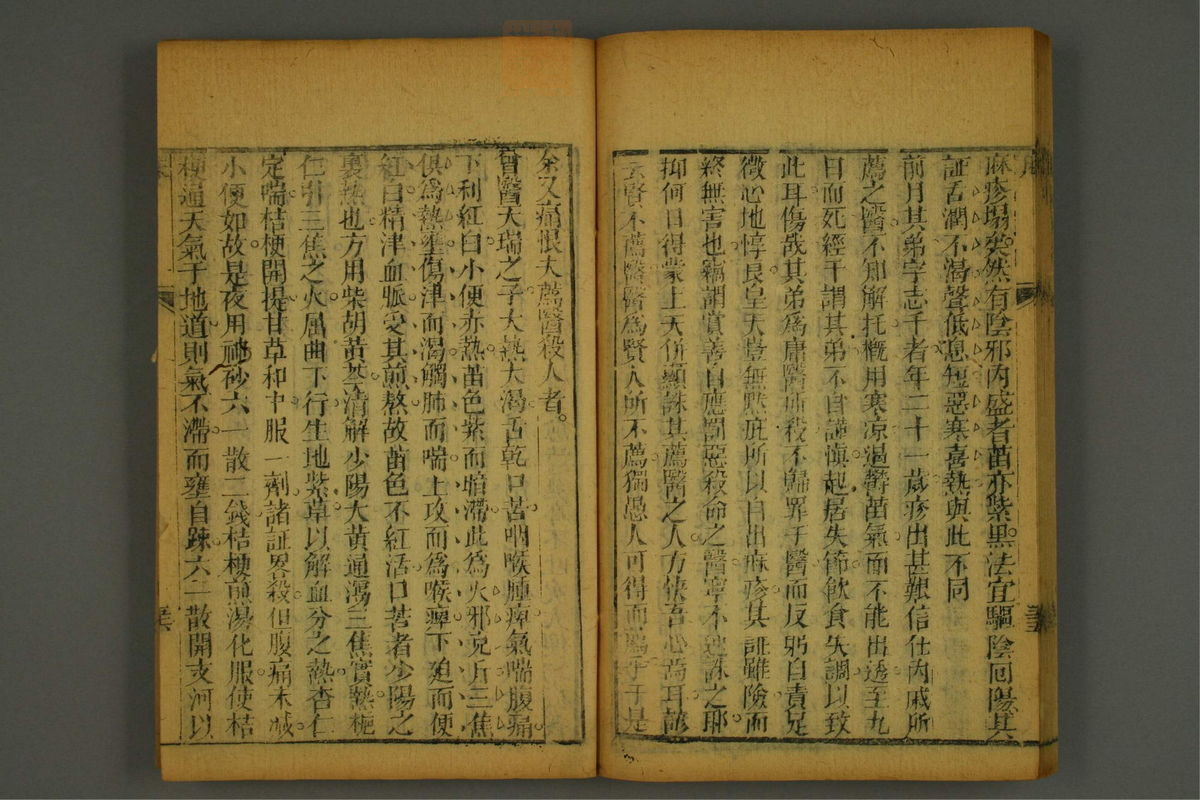 麻疹塌突然有陰邪內盛者苗亦紫黑法宜驅陰回陽其
証舌潤不渴聲低息短惡寒喜熱與此不同
前月其弟字志千者年二十一歲疹出甚艱信仕內戚所
薦之醫不知解托概用寒凉遏欝苗氣而不能出透至九
日而死經千謂其弟不自謹慎起居失節飲食失調以致
此耳傷哉其弟為庸醫所殺不歸罪于醫而反躬自責足
徵心地惇良皇天豈無黙庇所以自出麻疹其証雖險而
終無害也竊謂賞善自應罰惡殺命之醫寧不速誅之耶
抑何日得蒙上天併顯誅其薦醫之人方快吾心焉耳諺
云賢不薦醫醫為賢人所不薦獨愚人可得而薦乎于是
余又痛恨夫薦醫殺人者
曾醫大瑞之子大熱大渴舌乾口苦咽喉腫痺氣喘腹痛
下利紅白小便亦熱苗色紫而暗滯此為火邪充斥三焦
俱為熱壅傷津而渴觸肺而喘上攻而為喉痺下廹而便
紅白精津血脈受其煎熬故苗色不紅活口苦者少陽之
裏熱也方用柴胡黄芩清解少陽大黄通瀉三焦實熱梔
仁引三焦之火屈曲下行生地紫草以解血分之熱杏仁
定喘桔梗開提甘草和中服一劑諸証畧殺但腹痛未減
小便如故是夜用硼砂六一散二錢桔梗煎湯化服使桔
梗通天氣于地道則氣不滯而壅自疎六一散開支河以